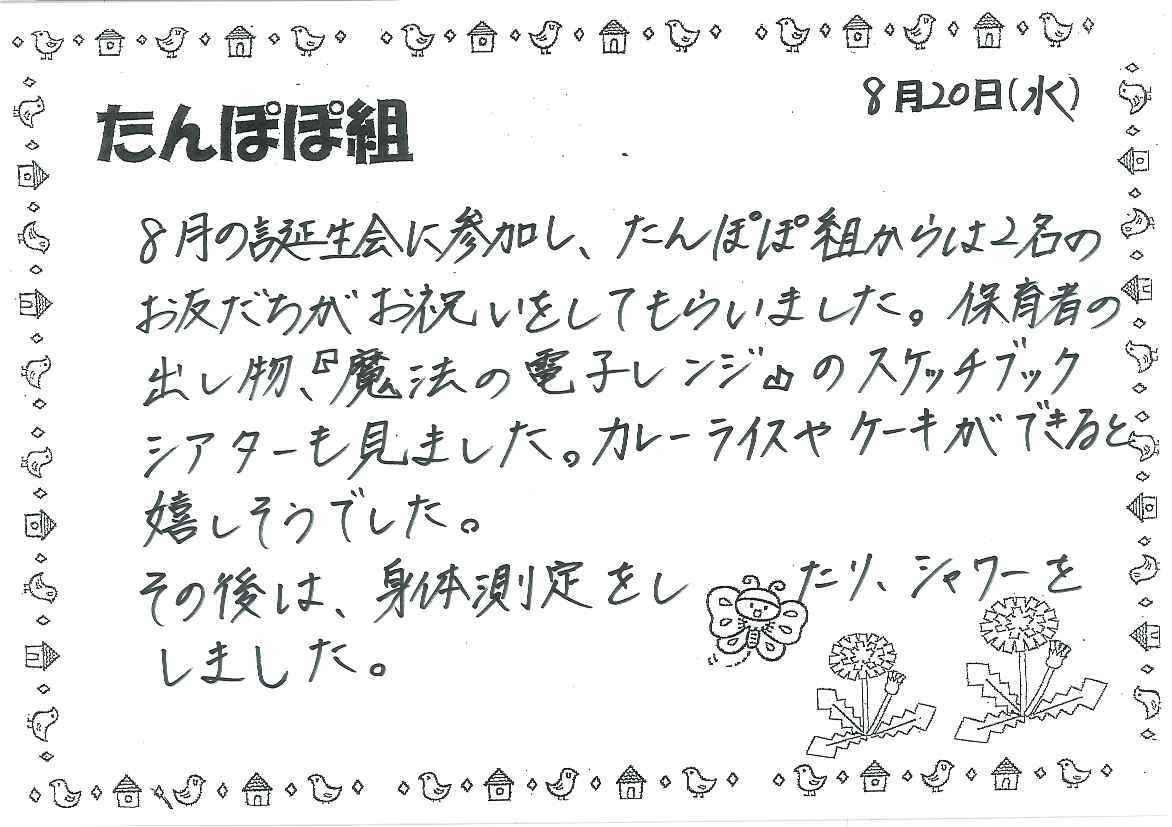 8月20日(水)
たんぽぽ組
8月の誕生会に参加し、たんぽぽ組からは2名の
お友だちがお祝いをしてもらいました。保育者の
出し物、『魔法の電子レンジ』のスケッチブック
シアターも見ました。カレーライスやケーキができると
嬉しそうでした。
その後は、身体測定をしたり、シャワーを
しました。